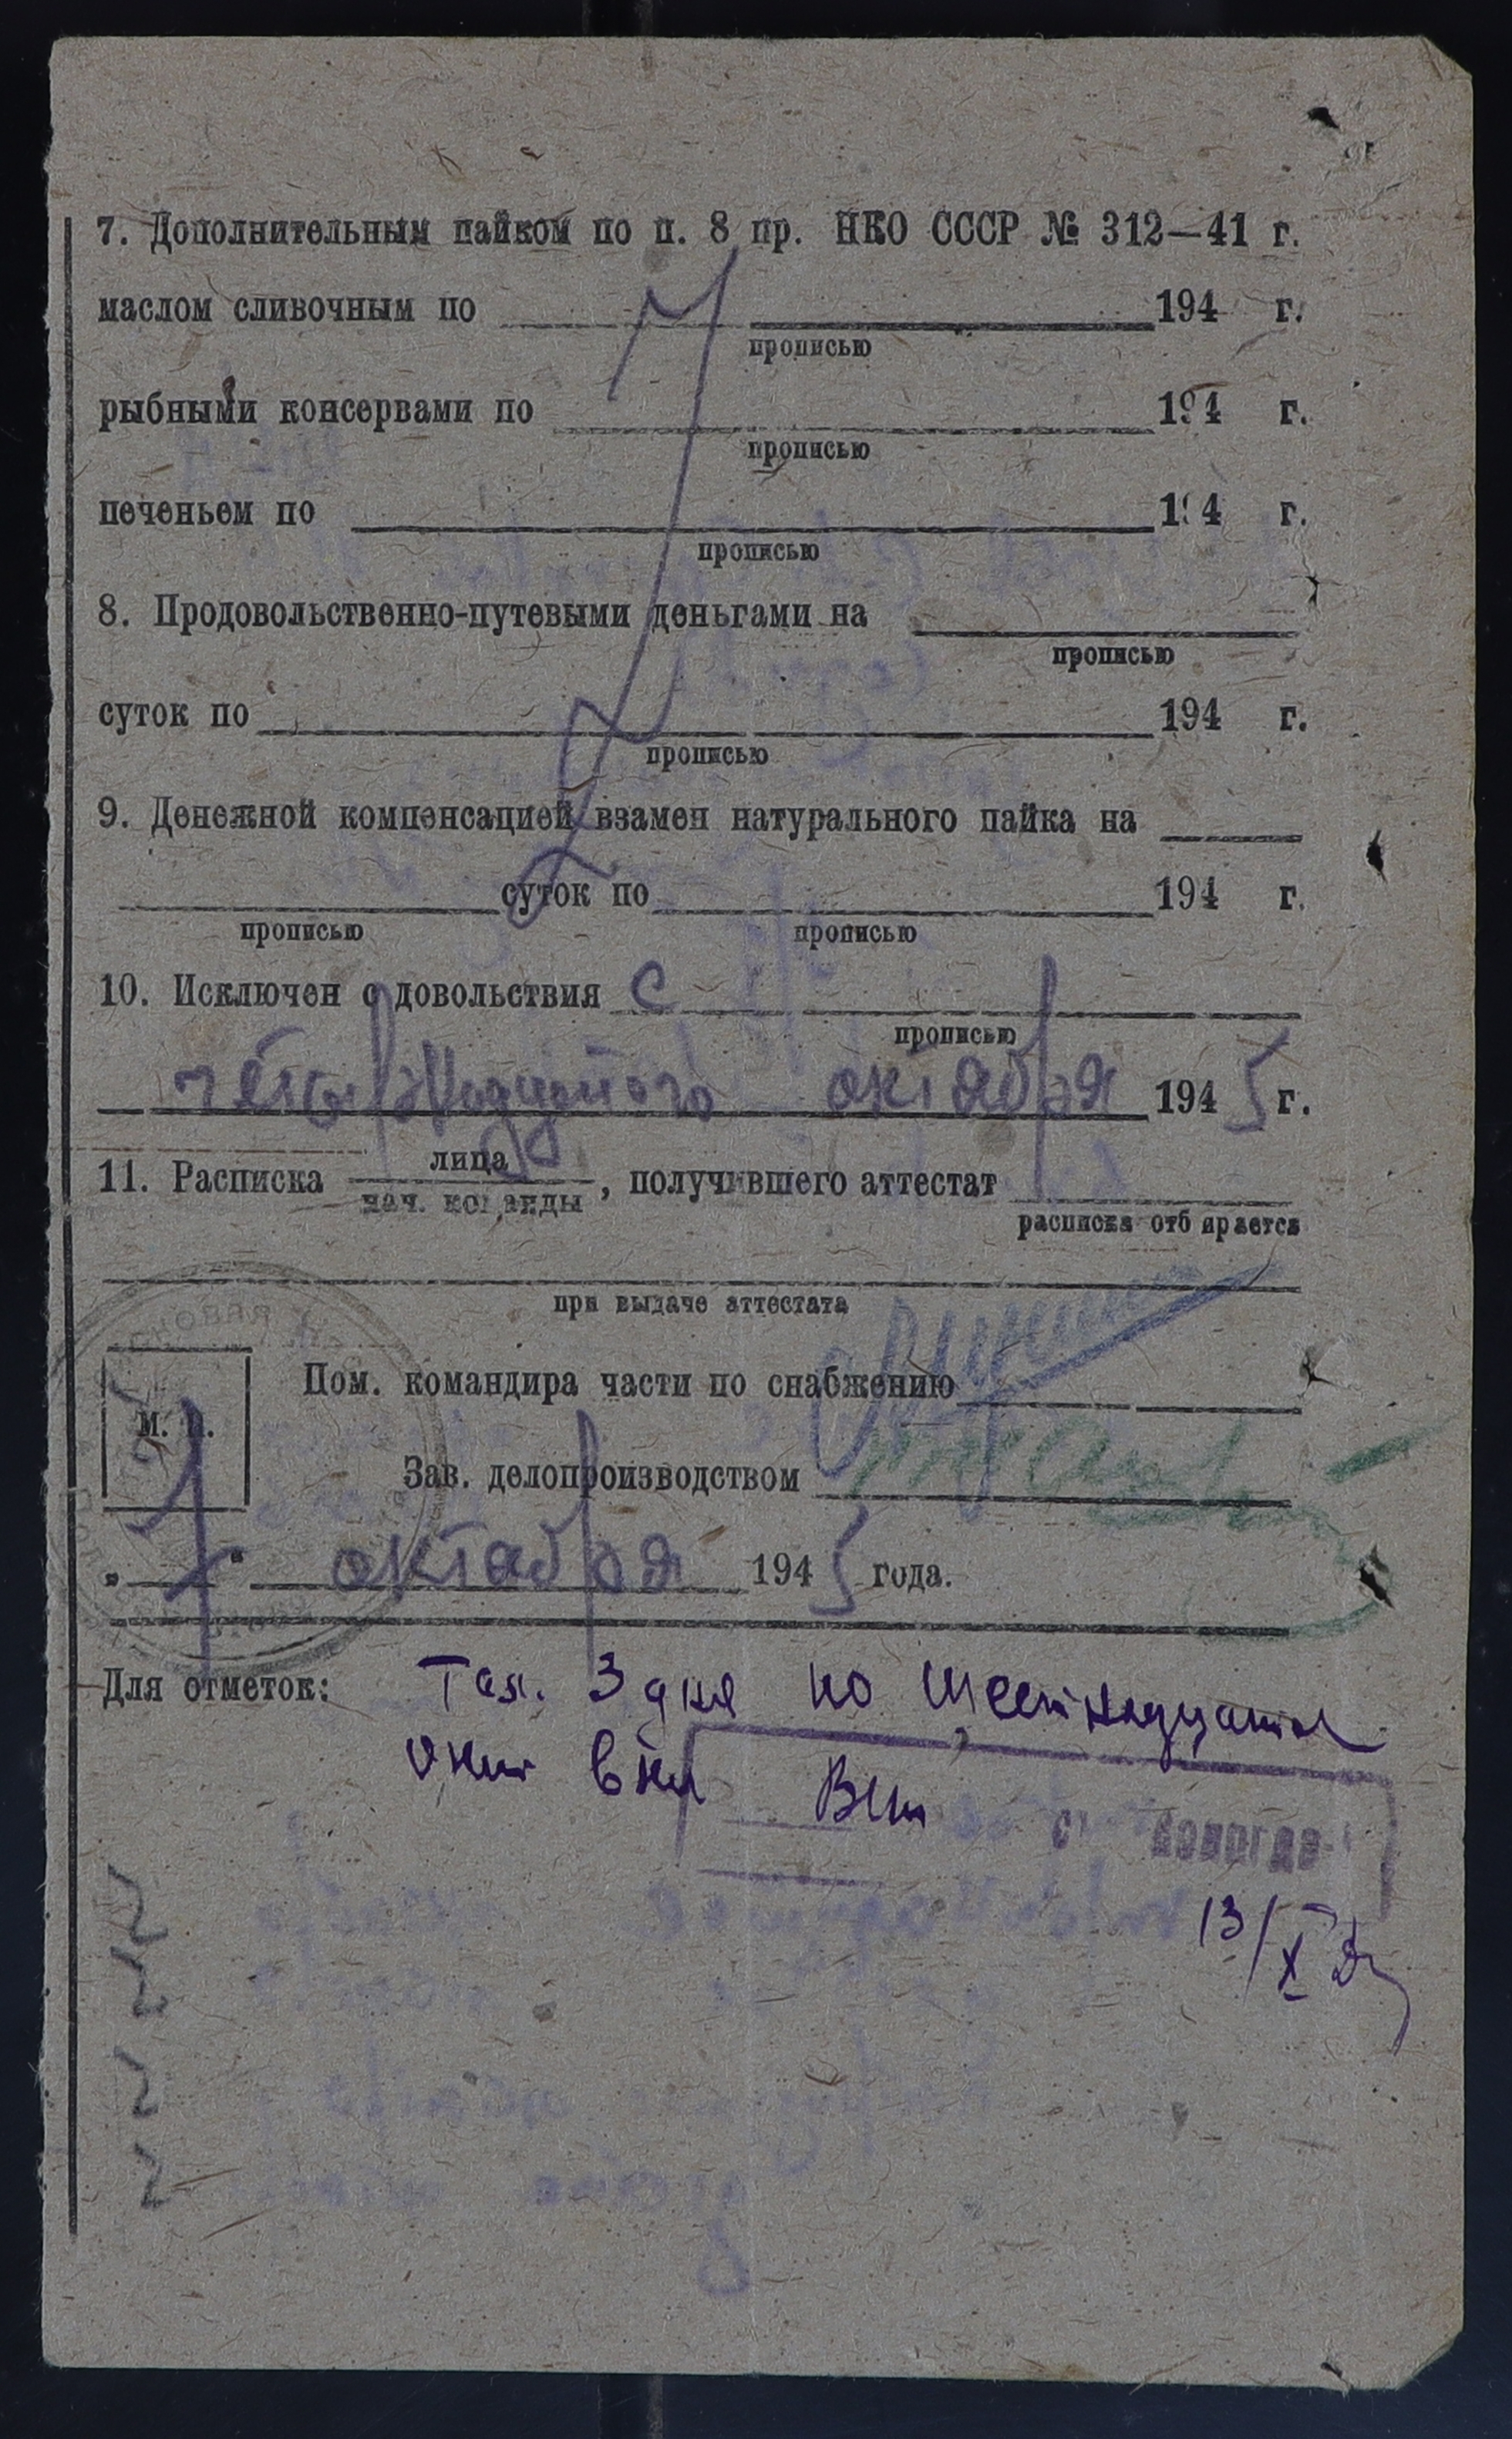 7. Дополнительным пайком по п. 8 пр. НКО СССР № 312—41 г.
маслом сливочным по 194 г.
прописью
рыбными консервами по 194 г.
прописью
печеньем по 194 г.
прописью
8. Продовольственно-путевыми деньгами на
прописью
суток по 194 г.
прописью
9. Денежной компенсацией взамен натурального пайка на
суток по 194 г.
прописью прописью
10. Исключен с довольствия с
прописью
четырнадцатого октября 1945 г.
11. Расписка лица
нач. команды, получившего аттестат
расписка отбирается
при выдаче аттестата
М. П.
Пом. командира части по снабжению
Зав. делопроизводством
„7“ октября 1945 года.
Для отметок: Тал. 3 дня по шестнадцатое
окт вкл
Вологда
13/X